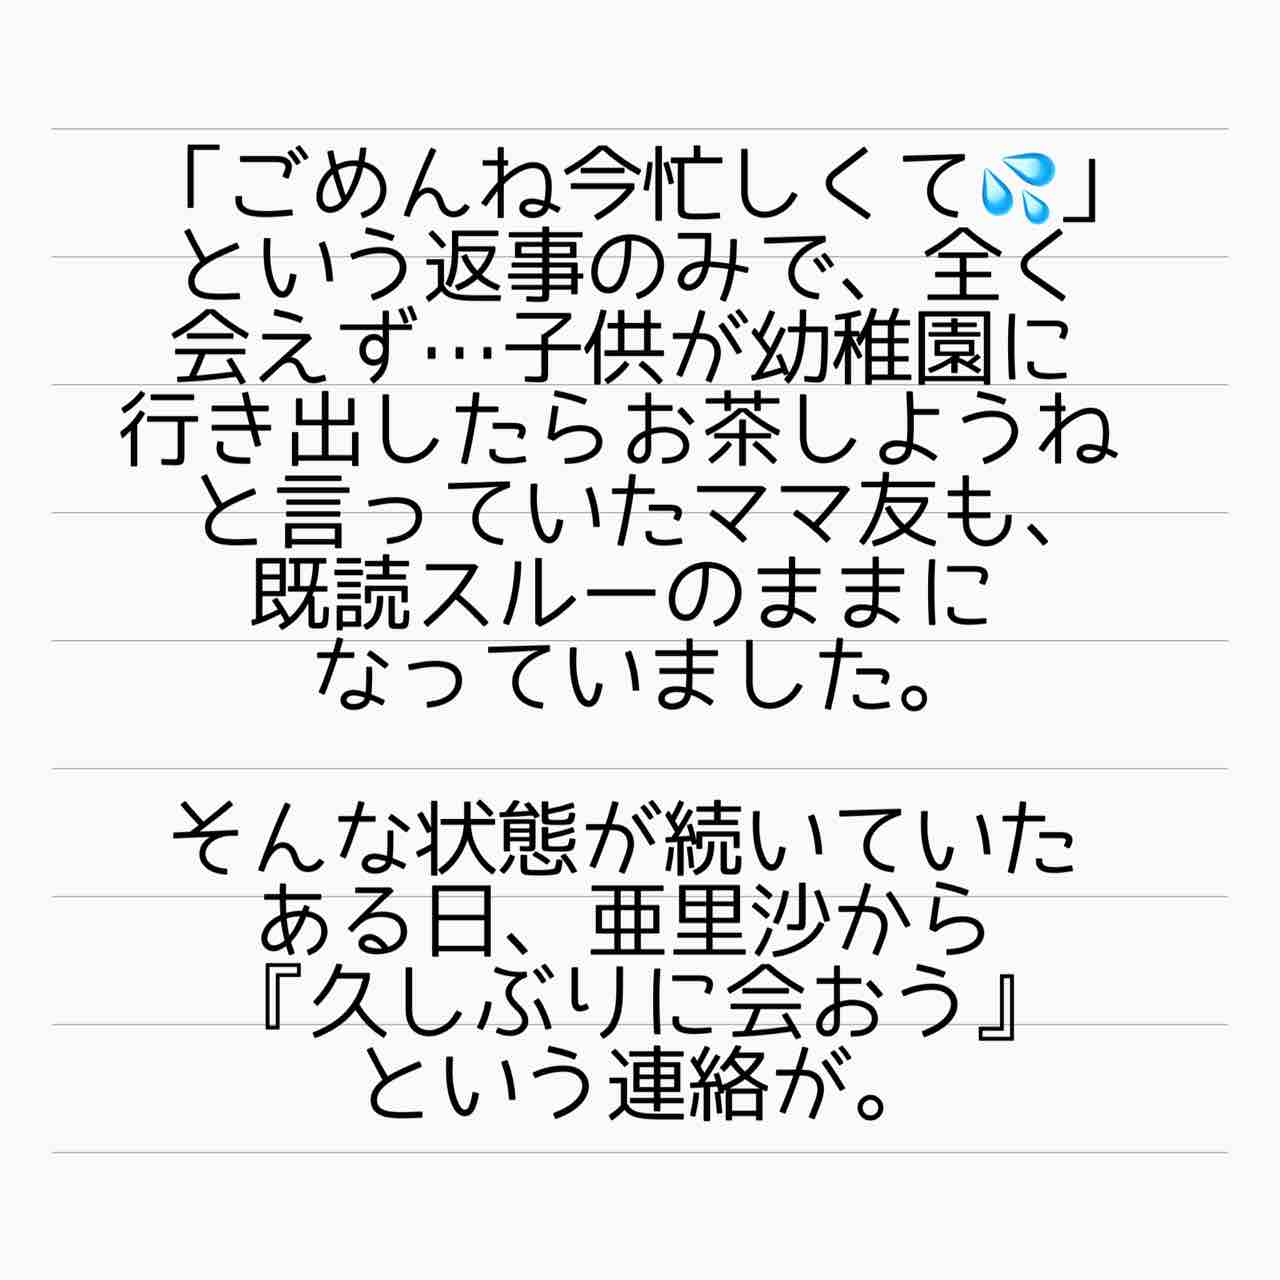 「ごめんね今忙しくて💦」
という返事のみで、全く
会えず…子供が幼稚園に
行き出したらお茶しようね
と言っていたママ友も、
既読スルーのままに
なっていました。
そんな状態が続いていた
ある日、亜里沙から
『久しぶりに会おう』
という連絡が。